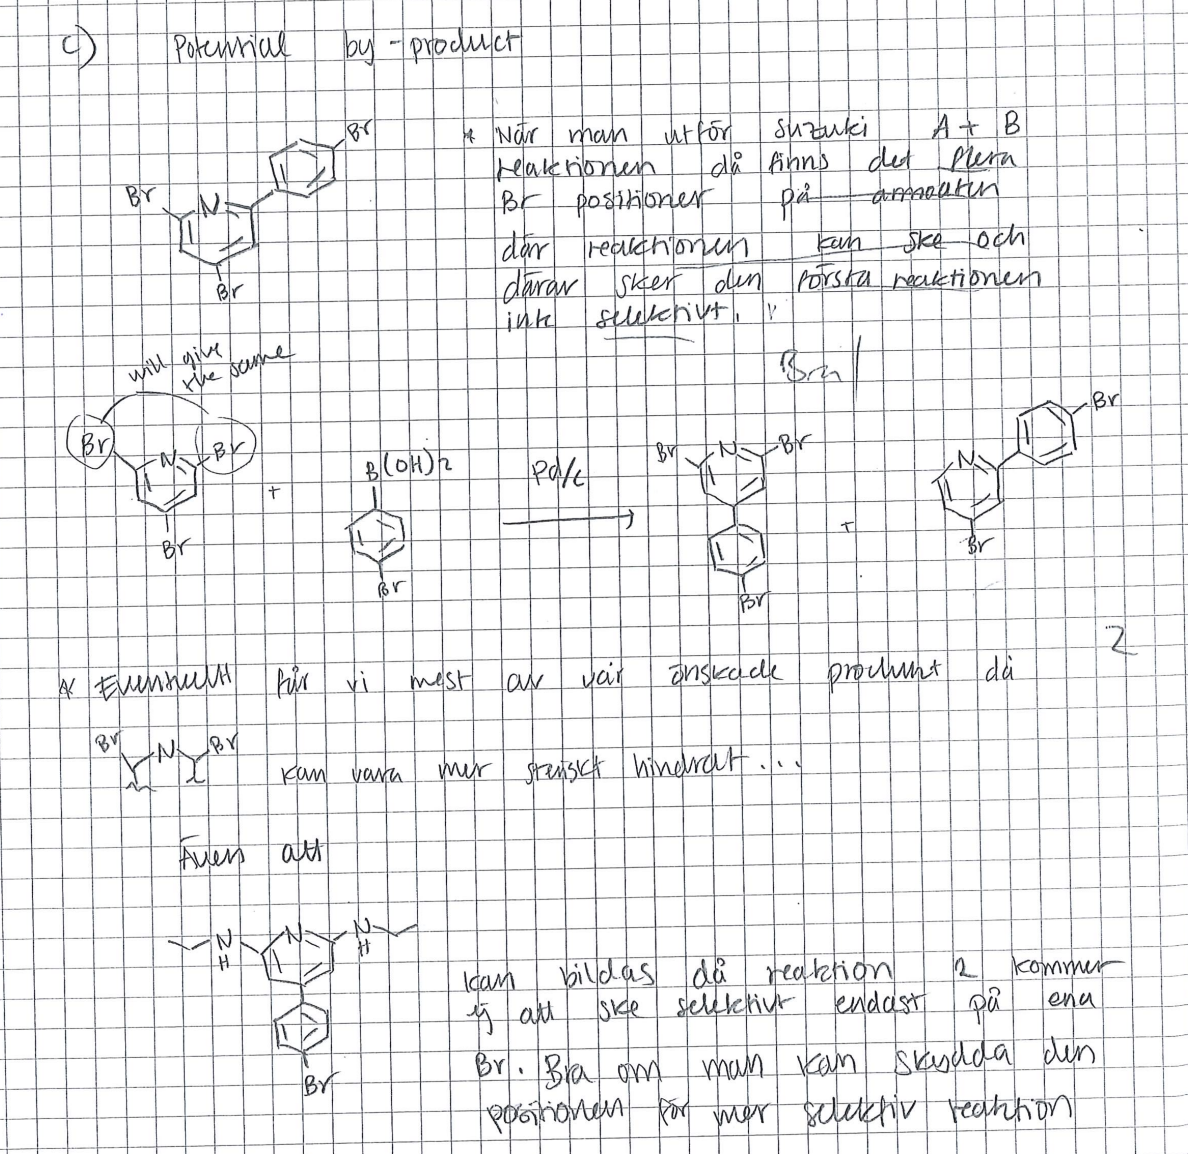 c) Potential by-product
Br
* När man utför suzuki A + B
reaktionen då finns det flera
Br N Br positioner på
där reaktionen kan ske och
därav sker den första reaktionen
Br
inte selektivt.
will give
the same
Bra
Br N Br B(OH)2 Pd/c Br N Br N Br
+ +
Br Br Br Br
2
* Eventuellt får vi mest av vår önskade produkt då
Br N Br kan vara mer steriskt hindrat...
Även att
N H N N H
Br
kan bildas då reaktion 2 kommer
ej att ske selektivt endast på ena
Br. Bra om man kan skydda den
positionen för mer selektiv reaktion